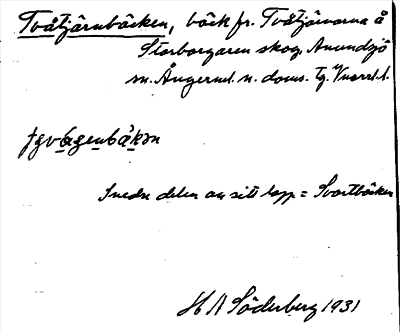 Tvåtjärnbäcken, bäck fr. Tvåtjärnarna å
Storborgaren skog, Anundsjö
sn. Ångerml. n. doms.
Inedre delen av sitt lopp = Svartbäcken
H A Söderberg 1931